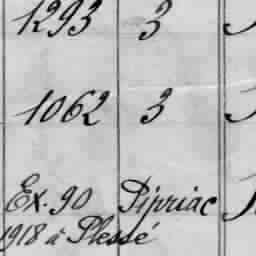 1293 3
1062 3
Ex. 90 Pipriac
1918 à Plessé